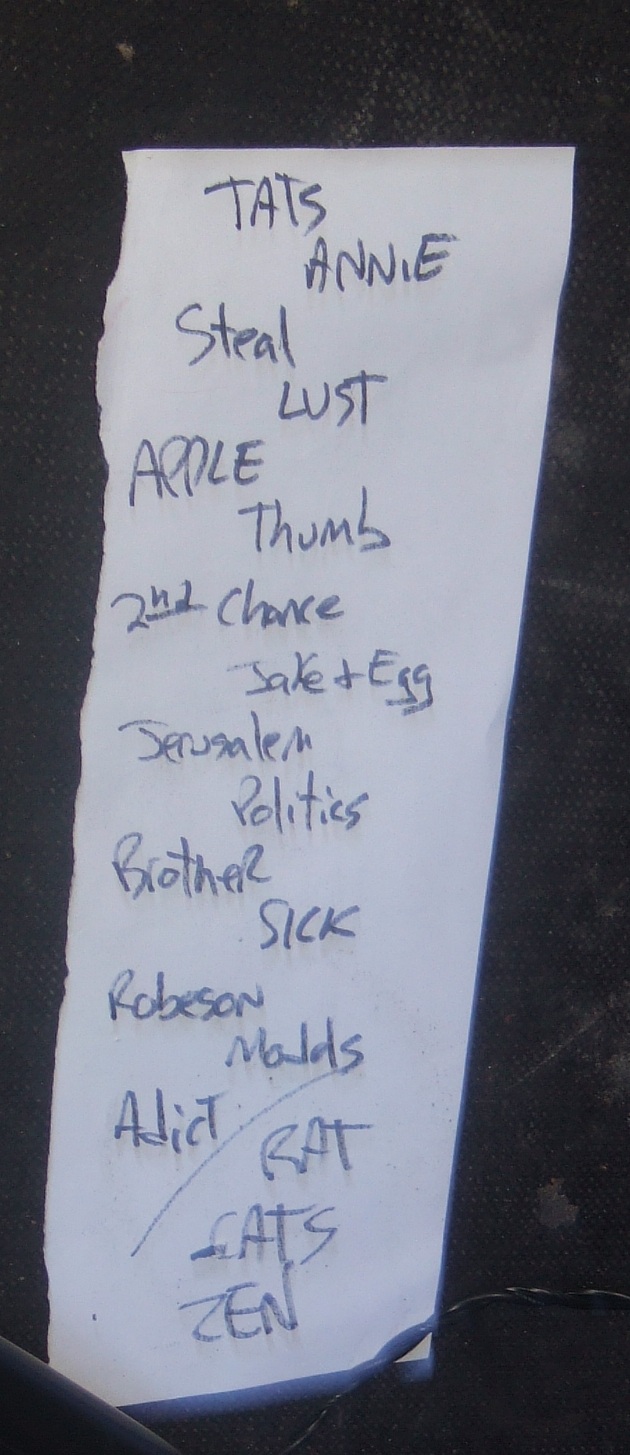 TATS
ANNIE
Steal
LUST
APPLE
Thumb
2nd Chance
Jake + Egg
Jerusalem
Politics
Brother
SICK
Robeson
Adict
RAT
CATS
ZEN